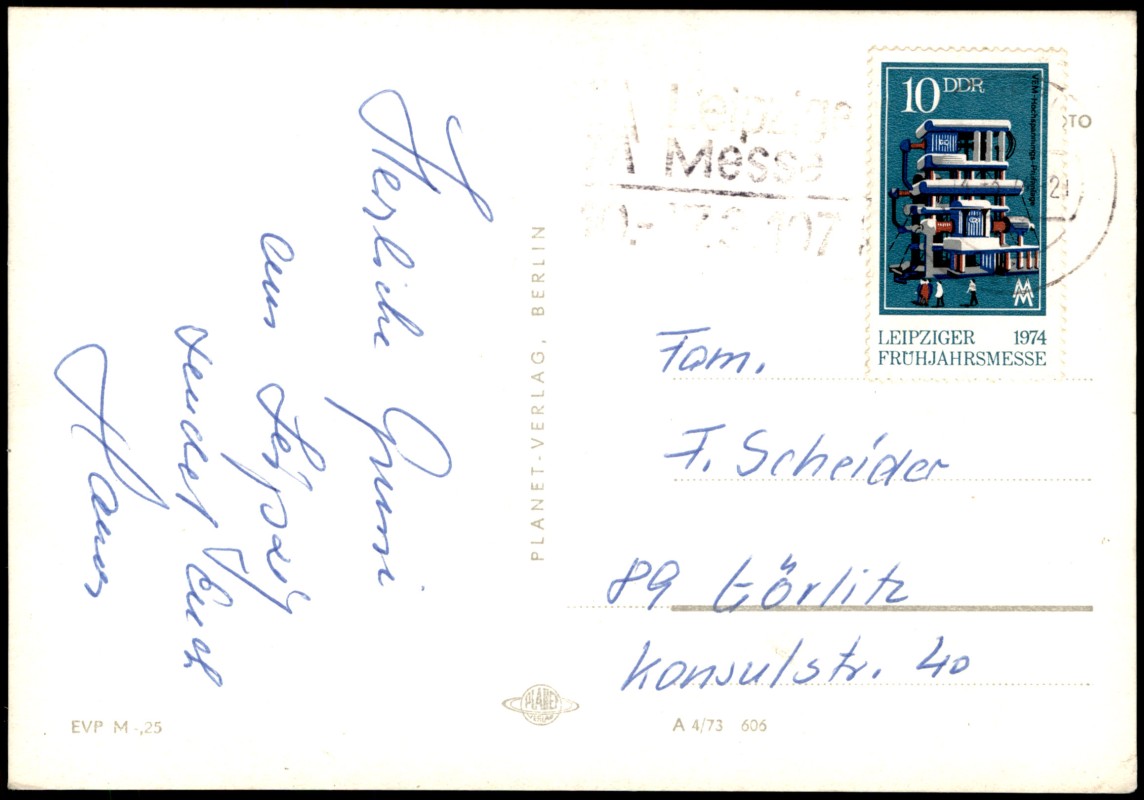 Herzliche Grüsse
aus Leipzig
sendet Euch
Hans
PLANET-VERLAG, BERLIN
Leipziger
Messe
10 DDR
VEM-Hochspannungs-Prüfanlage
MM
LEIPZIGER 1974
FRÜHJAHRSMESSE
Fam.
F. Scheider
89 Görlitz
Konsulstr. 40
EVP M -,25
PLANET
VERLAG
A 4/73 606